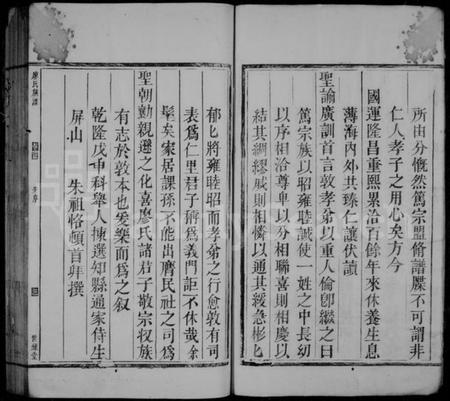 所由分慨然篤宗盟脩譜牒不可謂非
仁人孝子之用心矣方今
國運隆昌重熙累洽百餘年來休養生息
薄海內外共臻仁讓伏讀
聖諭廣訓首言敦孝弟以重人倫卽繼之曰
篤宗族以昭雍睦誠使一姓之中長幼
以序相洽尊卑以分相聯喜則相慶以
結其綢繆戚則相憐以通其緩急彬匕
郁匕將雍睦昭而孝弟之行愈敦有可
表為仁里君子旃為義門詎不休哉余
髦矣家居課孫不能出膺民社之司為
聖朝勸親遜之化喜廖氏諸君子敬宗收族
有志於敦本也爰樂而為之叙
乾隆戊申科舉人揀選知縣通家侍生
屏山　朱祖恪頓首拜撰
廖氏族譜
序
世綵堂